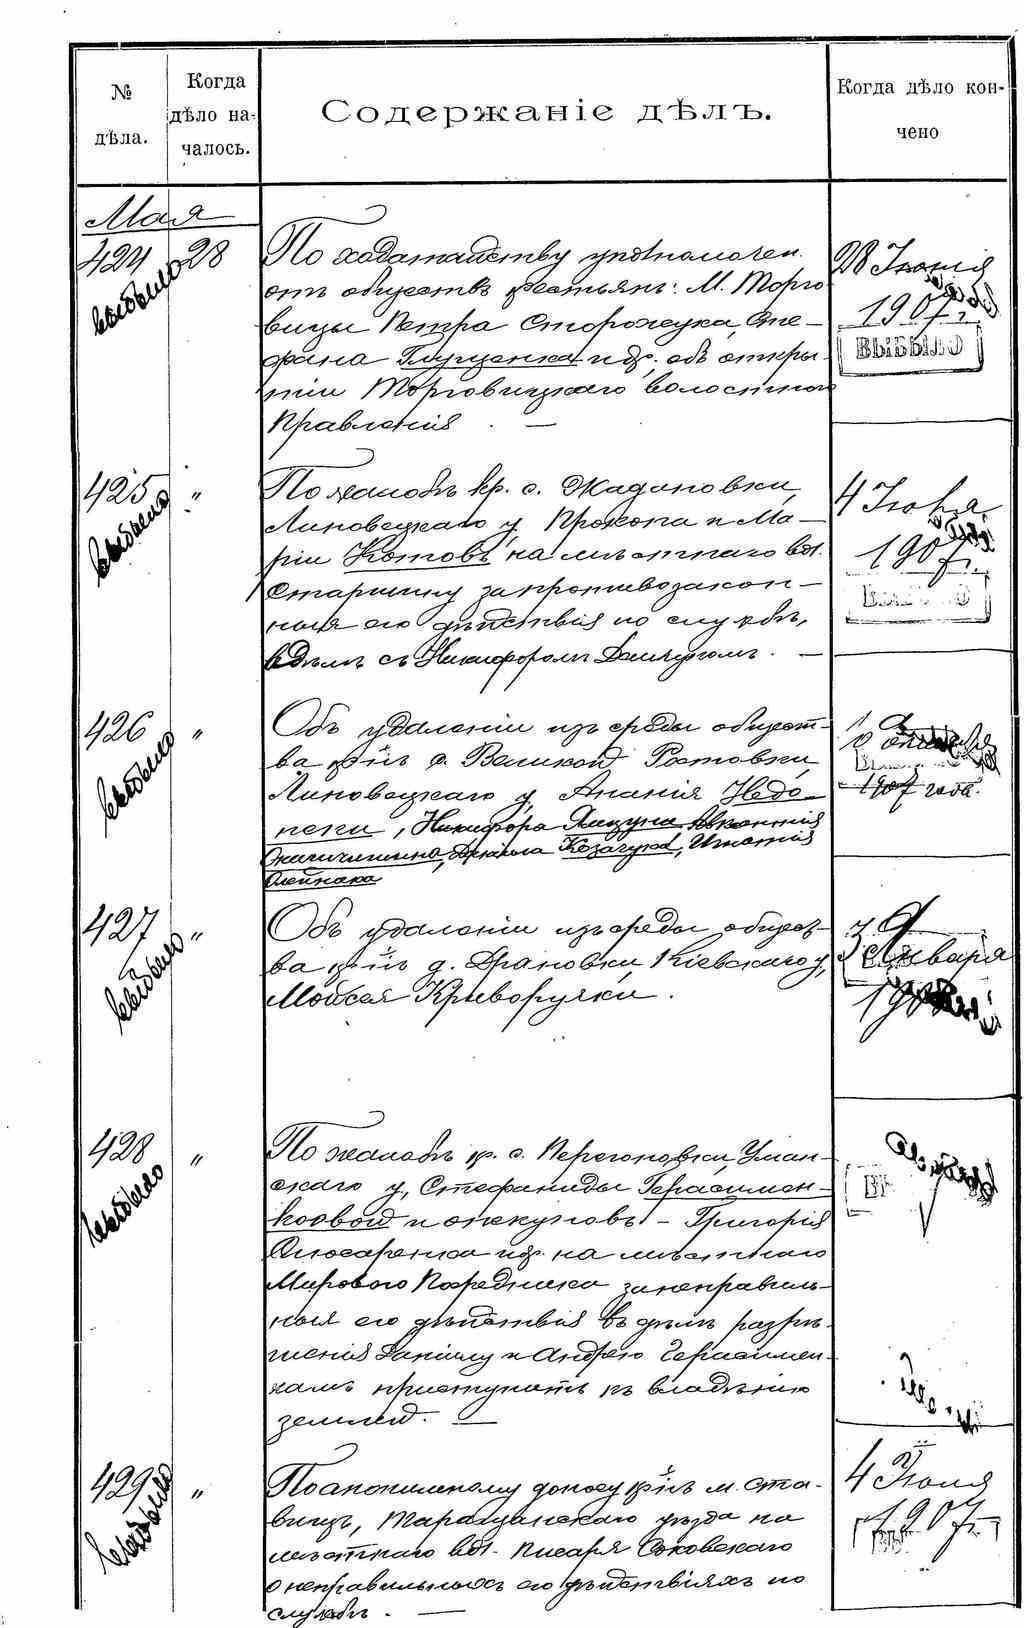 № дѣла.
Когда дѣло на-
чалось.
Содержаніе дѣлъ.
Когда дѣло кон-
чено
Мая
424 28
выбыло
По ходатайству уполномочен.
отъ обществъ крестьянъ: М. Торго
вицы Петра Сторожука, Сте-
фана и др. объ откры-
тіи Торговицкаго волостного
Правленія. —
28 Іюня
1907 г.
ВЫБЫЛО
425 "
выбыло
По жалобѣ кр. с. Жадановки,
Липовецкаго у, Прокопа и Ма-
ріи Котовъ, на мѣстнаго вол.
Старшину за противозакон-
ныя его дѣйствія по службѣ,
съ Никифоромъ —
4 Іюня
1907 г.
ВЫБЫЛО
426 "
выбыло
Объ удаленіи изъ среды общест-
ва кр-нъ с. Великой Ростовки,
Липовецкаго у, Ананія Недо-
пеки, Никифора
Козачука, Игнатія
Олейника
1907 года.
427 "
выбыло
Объ удаленіи изъ среды общес-
ва кр-нъ д. Драновки, Кіевскаго у,
Мойсея Криворучки.
3 Января
428 "
выбыло
По жалобѣ кр. с. Перегоновки, Уман-
скаго у, Стефаниды Герасимен-
ковой и опекуновъ – Григорія
Слюсаренка и др. на мѣстнаго
Мирового Посредника за неправиль-
ныя его дѣйствія въ дѣлѣ разрѣ-
шенія Даніилу и Андрею Герасимен-
камъ приступить къ владѣнію
землей. —
429 "
выбыло
По анонимному доносу кр-нъ м. Ста-
вищъ, Таращанскаго уѣзда на
мѣстнаго вол. писаря
о неправильныхъ его дѣйствіяхъ по
службѣ. —
4 Іюля
1907 г.